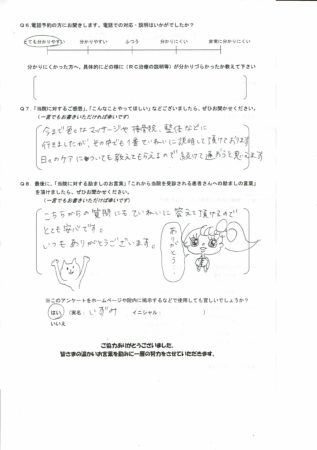 Q6.電話予約の方にお聞きします。電話での対応・説明はいかがでしたか？
とても分かりやすい　分かりやすい　ふつう　分かりにくい　非常に分かりにくい
分かりにくかった方へ、具体的にどの様に（RC治療の説明等）が分かりづらかったか教えて下さい
Q7.「当院に対するご感想」、「こんなことやってほしい」などございましたら、ぜひお聞かせください。
（一言でもお書きいただければ幸いです）
今まで色々なマッサージや接骨院、整体などに
行きましたが、その中でも１番ていねいに説明して頂けております
日々のケアについても教えてもらえるので続けて通おうと思えます
Q8.最後に、「当院に対する励ましのお言葉」「これから当院を受診される患者さんへの励ましの言葉」
を頂けましたら、ぜひお聞かせください。
（一言でもお書きいただければ幸いです）
こちらからの質問にもていねいに答えて頂けるので
とても安心です。
いつもありがとうございます。
ありがとう…
※このアンケートをホームページや院内に掲示するなどで使用しても宜しいでしょうか？
はい　（実名：いずみ　イニシャル：　）
いいえ
ご協力ありがとうございました。
皆さまの温かいお言葉を励みに一層の努力をさせていただきます。